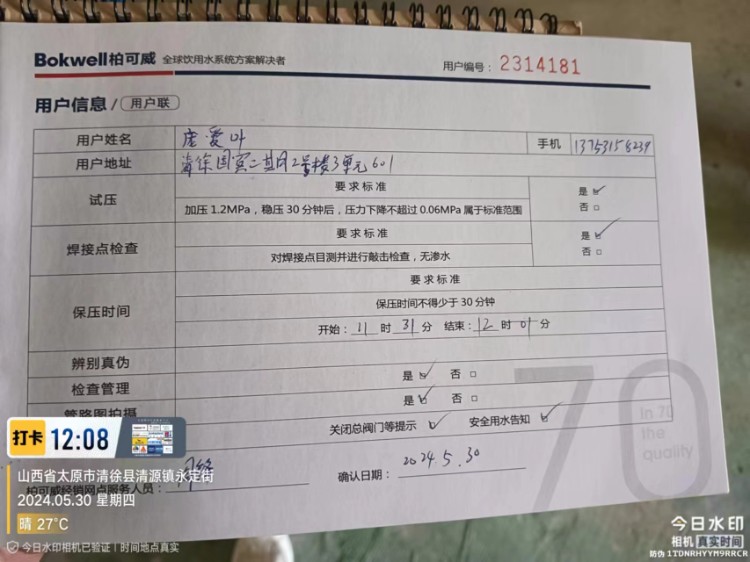 Bokwell柏可威 全球饮用水系统方案解决者
用户编号: 2314181
用户信息 / 用户联
用户姓名 愛 手机 13753158239
用户地址 清徐国宾二期2号楼3单元601
试压 要求标准
加压 1.2MPa，稳压 30 分钟后，压力下降不超过 0.06MPa 属于标准范围
是 ✓
否 □
焊接点检查 要求标准
对焊接点目测并进行敲击检查，无渗水
是 ✓
否 □
保压时间 要求标准
保压时间不得少于 30 分钟
开始: 11 时 31 分 结束: 12 时 01 分
辨别真伪 是 ✓ 否 □
检查管理 是 ✓ 否 □
管路图拍摄 关闭总阀门等提示 ✓ 安全用水告知 ✓
70
in 70
the
quality
柏可威经销网点服务人员:
确认日期: 2024.5.30
打卡 12:08
山西省太原市清徐县清源镇永定街
2024.05.30 星期四
晴 27°C
今日水印相机已验证 | 时间地点真实
今日水印
相机 真实时间
防伪 1TDNRHYYM9RRCR